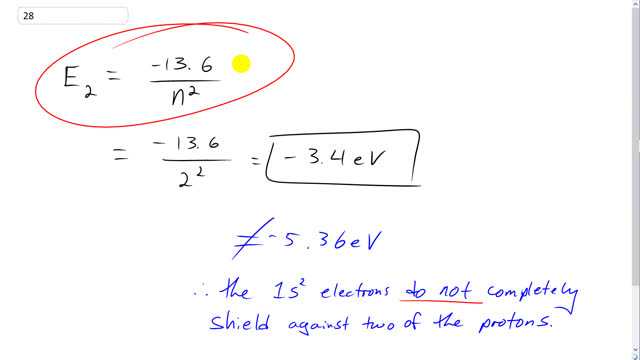 28
E₂ = -13.6 / n²
= -13.6 / 2² = -3.4 eV
≠ -5.36 eV
∴ the 1s² electrons do not completely
shield against two of the protons.